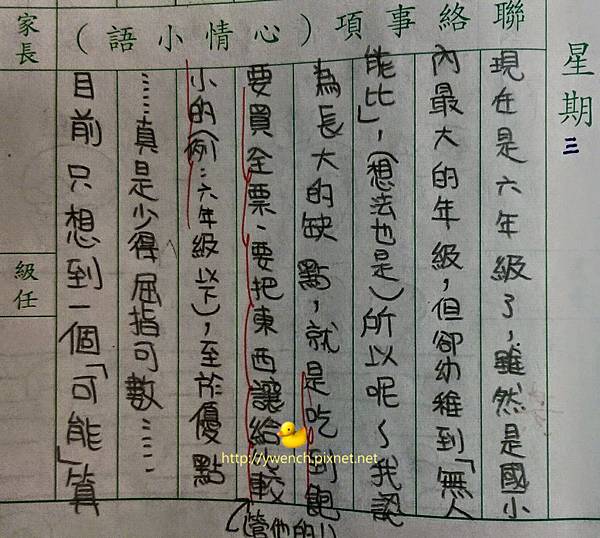 聯絡事項(心情小語)
家長
級任
星期三
現在是六年級了，雖然是國小
內最大的年級，但卻幼稚到「無人
能比」，(想法也是)所以呢~我認
為長大的缺點，就是吃到飽
要買全票、要把東西讓給較
小的(例：六年級以下)，至於優點
……真是少得屈指可數……
目前只想到一個「可能」算
http://ywench.pixnet.net